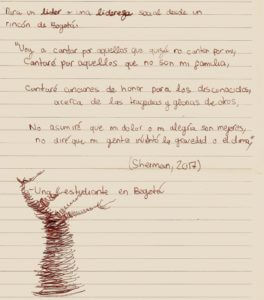 Para un líder o una lideresa social desde un
rincón de Bogotá:
"Voy a cantar por aquellos que quizá no cantan por mi,
Cantaré por aquellos que no son mi familia,
Cantaré canciones de honor para los desconocidos,
acerca de las tragedias y glorias de otros,
No asumiré que mi dolor o mi alegría son mejores,
no diré que mi gente inventó la gravedad o el clima,"
(Sherman, 2017)
-Una estudiante en Bogotá